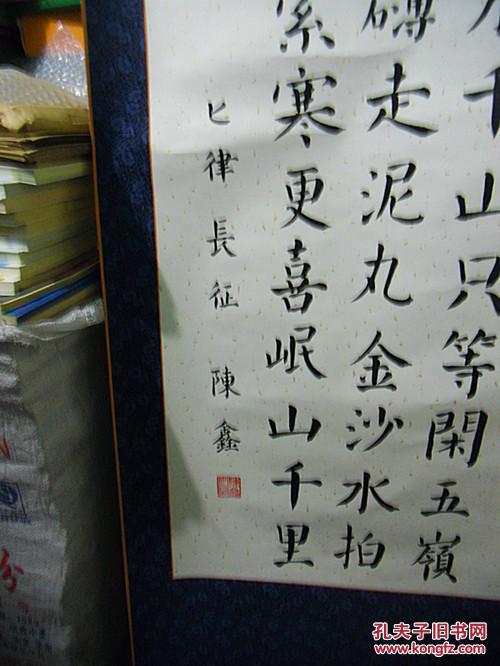 千山只等閑五嶺
走泥丸金沙水拍
寒更喜岷山千里
七律長征 陳鑫
份
孔夫子旧书网
www.kongfz.com